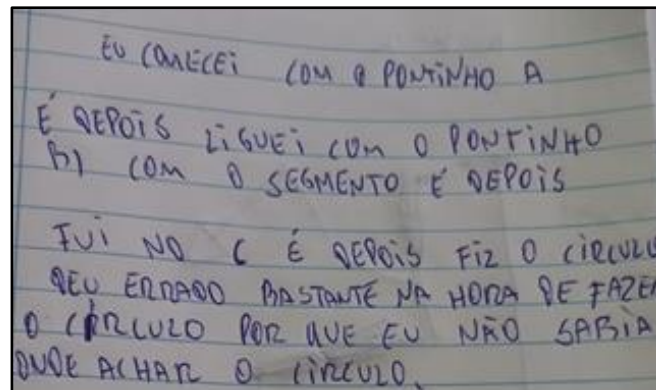 EU COMECEI COM O PONTINHO A
É DEPOIS LIGUEI COM O PONTINHO
B) COM O SEGMENTO É DEPOIS
FUI NO C É DEPOIS FIZ O CÍRCULO
DEU ERRADO BASTANTE NA HORA DE FAZER
O CÍRCULO POR QUE EU NÃO SABIA
ONDE ACHAR O CÍRCULO.